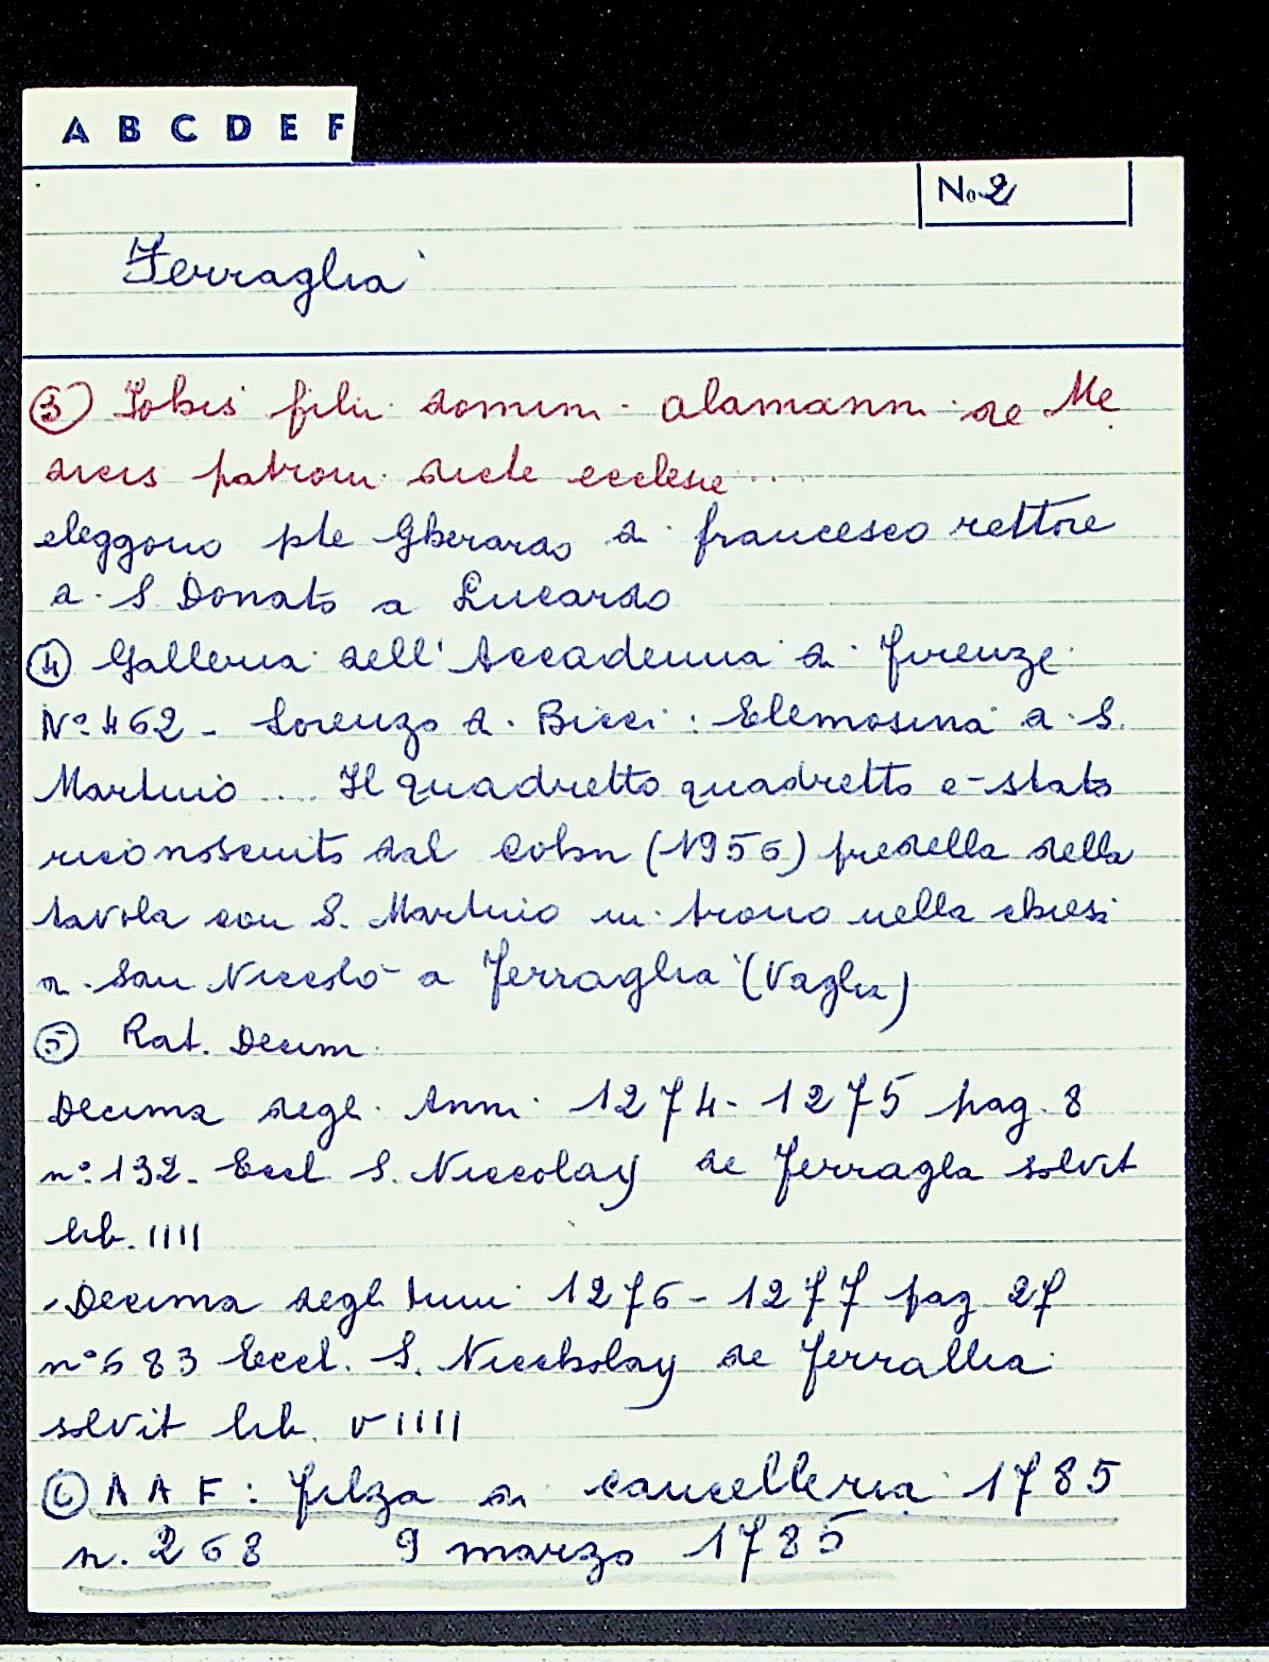 A B C D E F
No 2
Ferraglia
③ Iohis filii domini alamanni de Me
dicis patroni dicte ecclesie ...
eleggono pte Gherardo di francesco rettore
a S Donato a Lucardo
④ Galleria dell'Accademia di Firenze
N° 462 - Lorenzo di Bicci: Elemosina di S.
Martino .... Il quadretto quadretto e-stato
riconosciuto dal Cohn (1956) predella della
tavola con S. Martino in trono nella chiesi
di San Niccolò a Ferraglia (Vaglia)
⑤ Rat. Decim
Decima degli Anni 1274-1275 pag. 8
n° 132. Eccl S. Niccolay de Ferragla solvit
lib. IIII
Decima degli Anni 1276-1277 pag 27
n° 583 Eccl. S. Niccholay de Ferrallia
solvit lib. VIIII
⑥ A A F: filza di cancelleria 1785
n. 268 9 marzo 1785